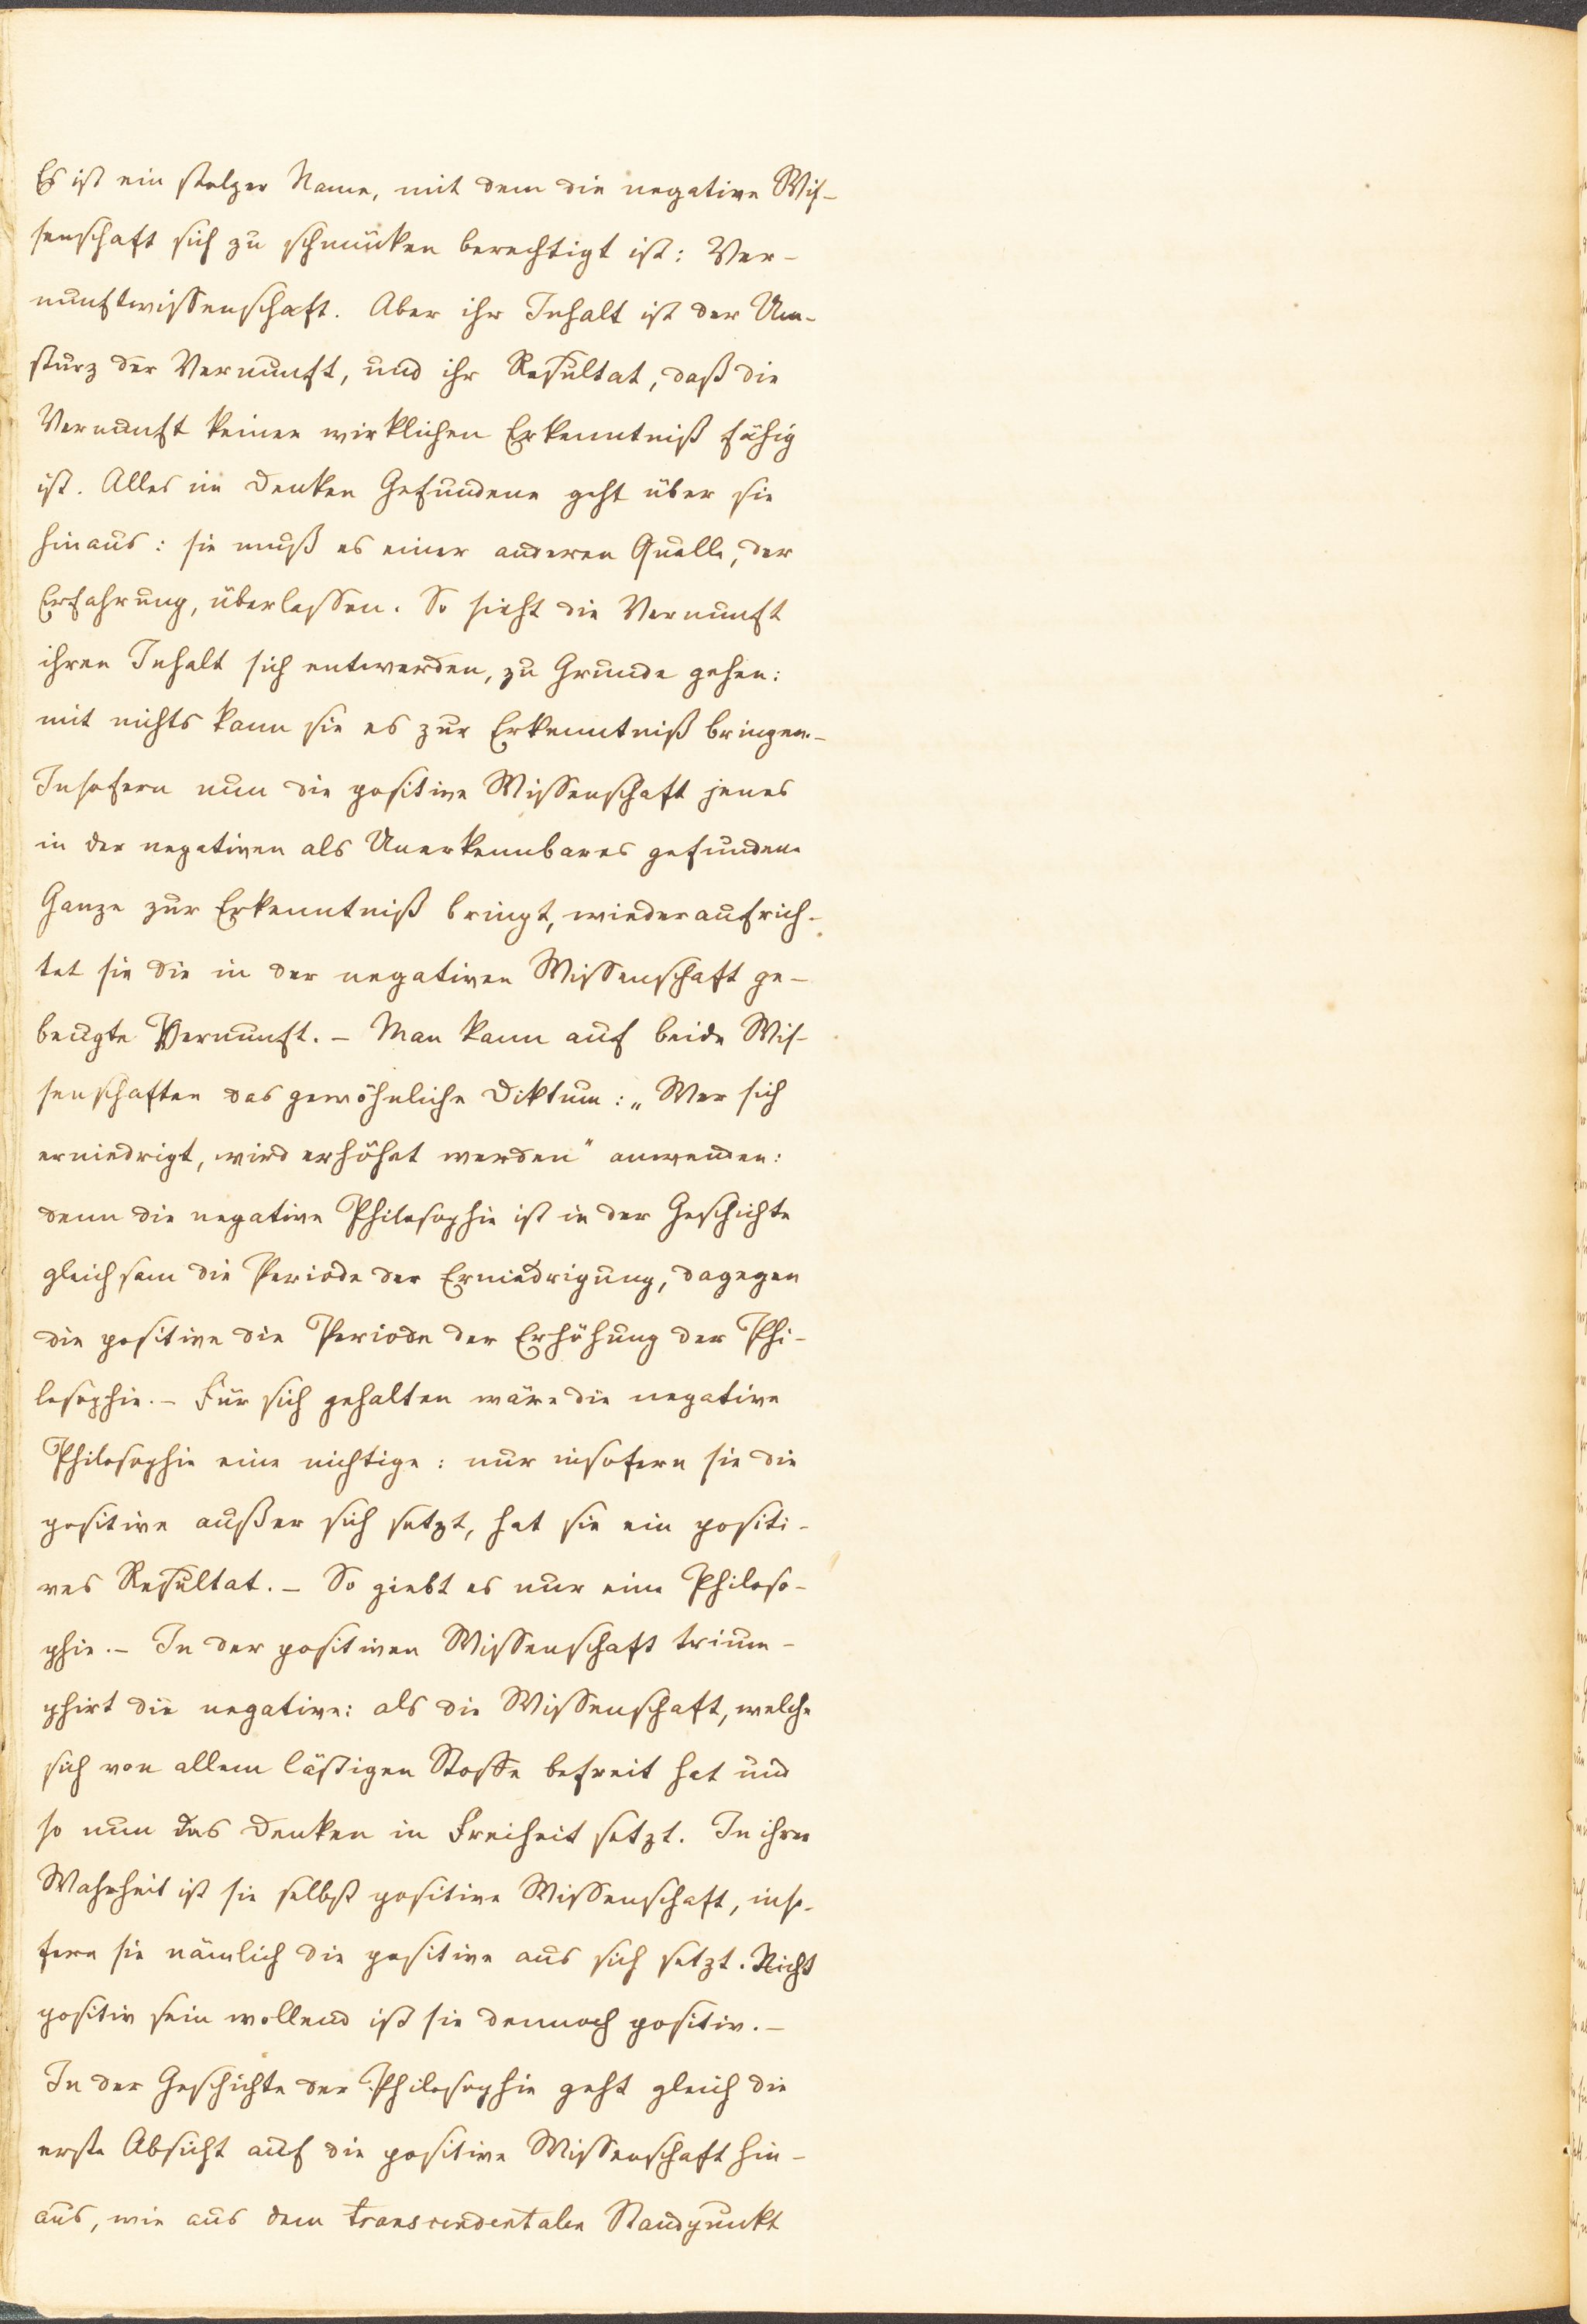 Es ist ein stolzer Name, mit dem die negative Wis-
senschaft sich zu schmücken berechtigt ist: Ver-
nunftwissenschaft. Aber ihr Inhalt ist der Um-
sturz der Vernunft, und ihr Resultat, daß die
Vernunft keiner wirklichen Erkenntniß fähig
ist. Alles im Denken Gefundene geht über sie
hinaus: sie muß es einer anderen Quelle, der
Erfahrung, überlassen. So sieht die Vernunft
ihren Inhalt sich entwerden, zu Grunde gehen:
mit nichts kann sie es zur Erkenntniß bringen. –
Insofern nun die positive Wissenschaft jenes
in der negativen als Unerkennbares gefundene
Ganze zur Erkenntniß bringt, wiederaufrich-
tet sie die in der negativen Wissenschaft ge-
beugte Vernunft. – Man kann auf beide Wis-
senschaften das gewöhnliche Diktum: „Wer sich
erniedrigt, wird erhöhet werden" anwenden:
denn die negative Philosophie ist in der Geschichte
gleichsam die Periode der Erniedrigung, dagegen
die positive die Periode der Erhöhung der Phi-
losophie. – Für sich gehalten wäre die negative
Philosophie eine nichtige: nur insofern sie die
positive außer sich setzt, hat sie ein positi-
ves Resultat. – So giebt es nur eine Philoso-
phie. – In der positiven Wissenschaft trium-
phirt die negative: als die Wissenschaft, welche
sich von allem lästigen Stoffe befreit hat und
so nun das Denken in Freiheit setzt. In ihrer
Wahrheit ist sie selbst positive Wissenschaft, inso-
fern sie nämlich die positive aus sich setzt. Nicht
positiv sein wollend ist sie dennoch positiv. –
In der Geschichte der Philosophie geht gleich die
erste Absicht auf die positive Wissenschaft hin-
aus, wie aus dem transcendentalen Standpunkt